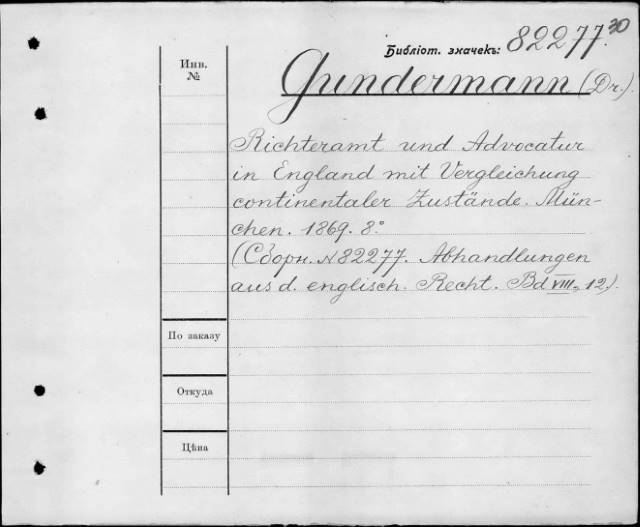 Библіот. значекъ: 82277.30
Инв.
№
Gundermann (Dr.).
Richteramt und Advocatur
in England mit Vergleichung
continentaler Zustände. Mün-
chen. 1869. 8°.
(Сборн. № 82277. Abhandlungen
aus d. englisch. Recht. Bd VIII, 12.).
По заказу
Откуда
Цѣна